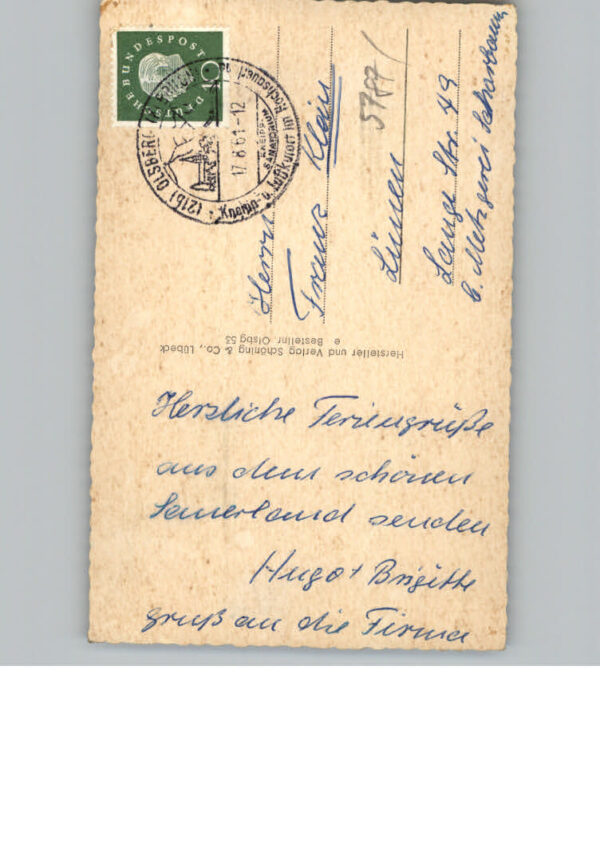 DEUTSCHE BUNDESPOST
(21b) OLSBERG
17.8.61-12
KNEIPP-
SANATORIUM
Kneipp- u. Luftkurort im Hochsauerl
Herrn
Franz Klein
5787/
Lünen
Lange Str. 49
b. Metzgerei
Hersteller und Verlag Schöning & Co., Lübeck
e Bestellnr. Olsbg 53
Herzliche Feriengrüße
aus dem schönen
Sauerland senden
Hugo + Brigitte
Gruß an die Firma